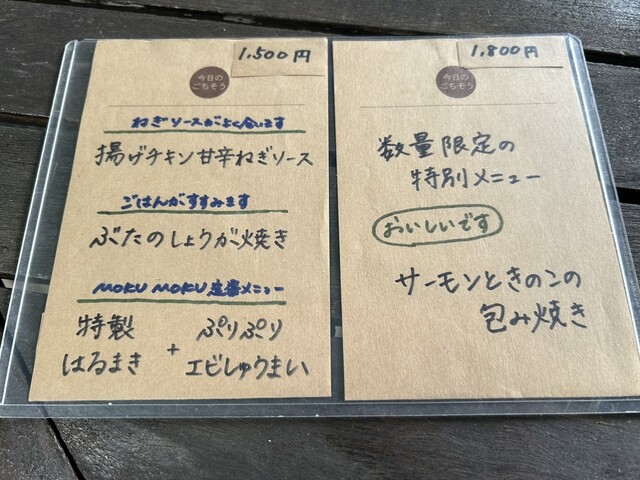 1,500円
今日の
ごちそう
ねぎソースがよく合います
揚げチキン甘辛ねぎソース
ごはんがすすみます
ぶたのしょうが焼き
MOKU MOKU定番メニュー
特製
はるまき
+
ぷりぷり
エビしゅうまい
1,800円
今日の
ごちそう
数量限定の
特別メニュー
おいしいです
サーモンときのこの
包み焼き